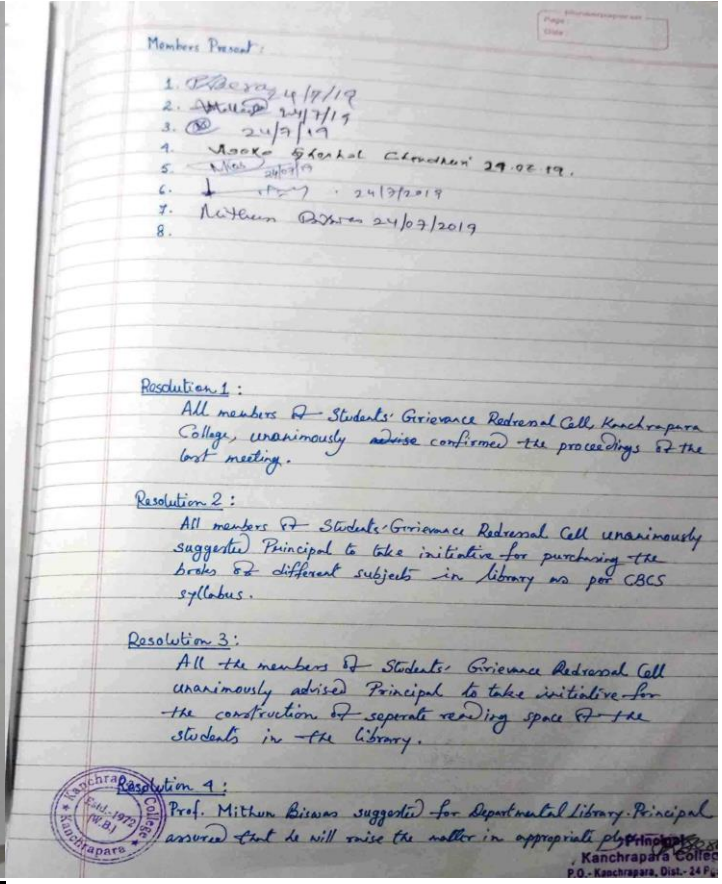 Page :
Date :
Members Present :
1. 24/7/19
2. 24/7/19
3. 24/7/19
4. Ghoshal Choudhuri 24.07.19.
5. 24/07/19
6. 24/7/2019
7. Mithun Biswas 24/07/2019
8.
Resolution 1 :
All members of Students' Grievance Redressal Cell, Kanchrapara
College, unanimously advise confirmed the proceedings of the
last meeting.
Resolution 2 :
All members of Students' Grievance Redressal Cell unanimously
suggested Principal to take initiative for purchasing the
books of different subjects in library as per CBCS
syllabus.
Resolution 3 :
All the members of Students' Grievance Redressal Cell
unanimously advised Principal to take initiative for
the construction of seperate reading space of the
students in the library.
Resolution 4 :
Prof. Mithun Biswas suggested for Departmental Library. Principal
assured that he will raise the matter in appropriate
Kanchrapara College
Estd.-1972
(W.B.)
Kanchrapara
Principal
Kanchrapara Colleg
P.O.- Kanchrapara, Dist.- 24 P